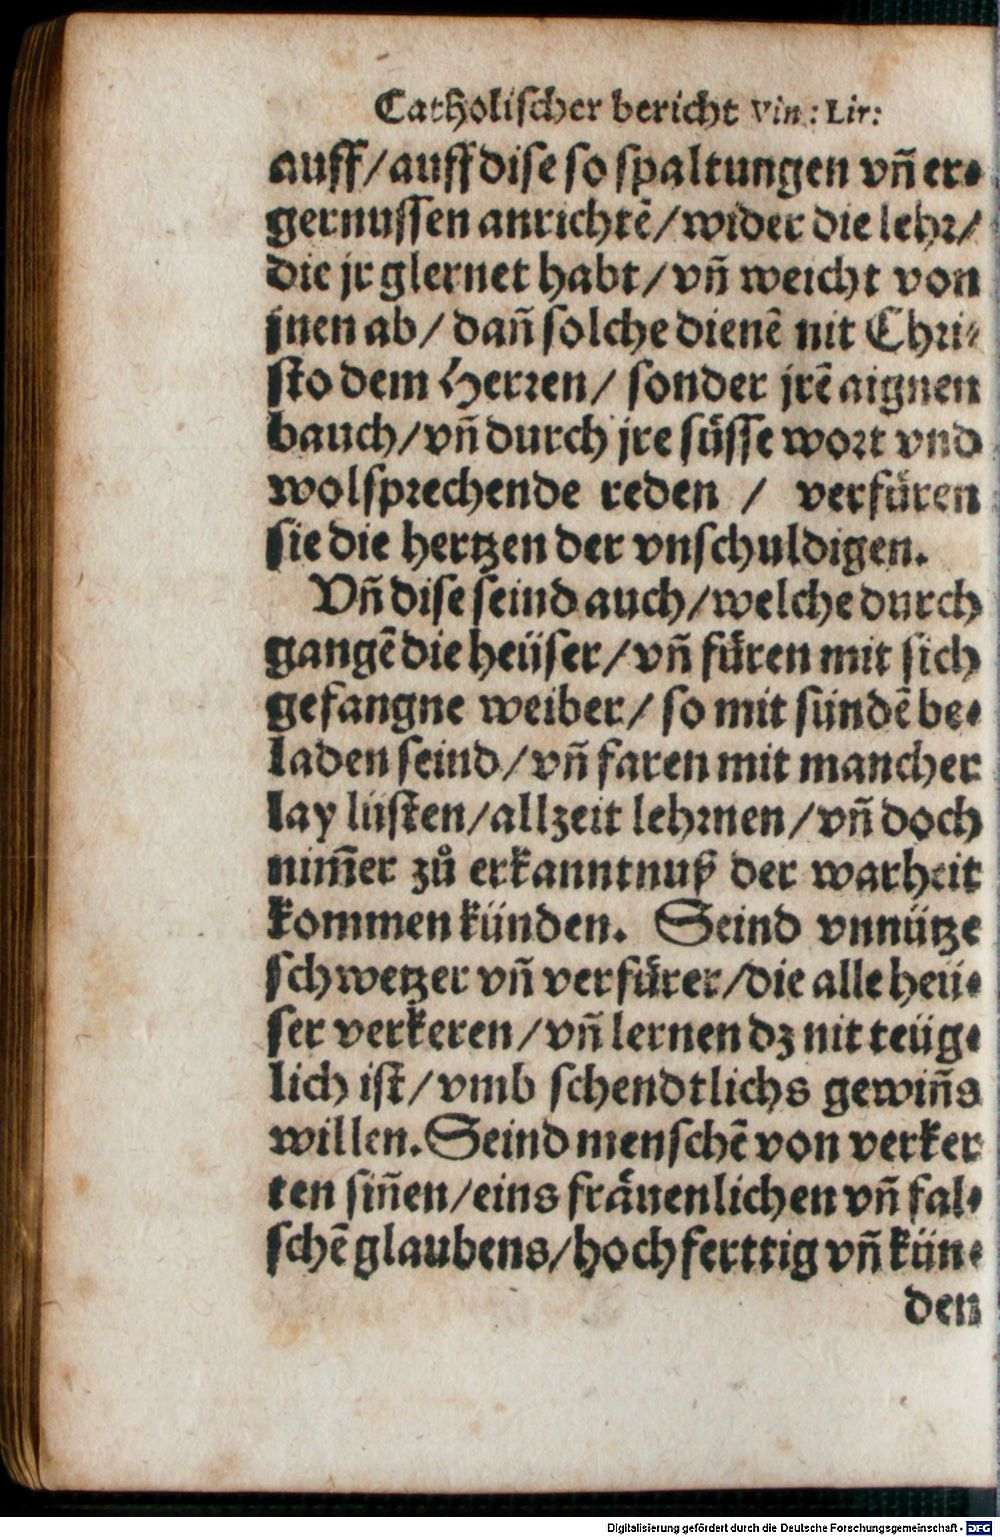 Catholischer bericht Vin.: Lir:
auff/auff dise so spaltungen vñ er⸗
gernussen anrichtē/wider die lehr/
die jr glernet habt/vñ weicht von
jnen ab/ dañ solche dienē nit Chri⸗
sto dem Herren/ sonder jrē aignen
bauch/vñ durch jre süsse wort vnd
wolsprechende reden / verfüren
sie die hertzen der vnschuldigen.
Vñ dise seind auch/welche durch
gangē die heüser/vñ füren mit sich
gefangne weiber/ so mit sündē be⸗
laden seind/vñ faren mit mancher
lay lüsten/allzeit lehrnen/vñ doch
nim̄er zů erkanntnuß der warheit
kommen künden. Seind vnnütze
schwetzer vñ verfürer/die alle heü⸗
ser verkeren/vñ lernen dz nit teüg⸗
lich ist/vmb schendtlichs gewiñs
willen. Seind menschē von verker
ten siñen/eins fräuenlichen vñ fal⸗
schē glaubens/hochferttig vñ kün⸗
den
Digitalisierung gefördert durch die Deutsche Forschungsgemeinschaft - DFG